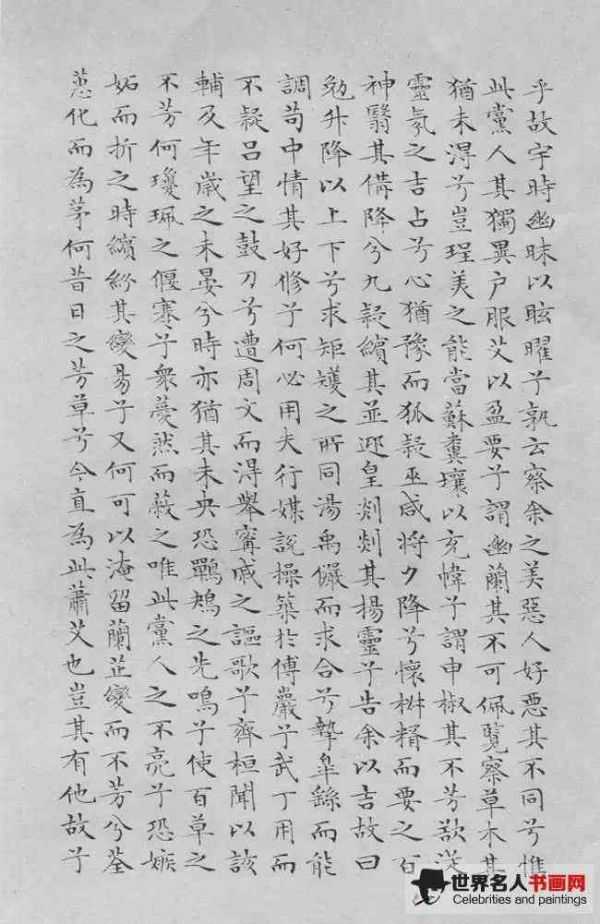 乎故宇時幽昧以眩曜兮孰云察余之美惡人好惡其不同兮惟
此黨人其獨異戶服艾以盈要兮謂幽蘭其不可佩覽察草木其
猶未得兮豈珵美之能當蘇糞壤以充幃兮謂申椒其不芳欲從
靈氛之吉占兮心猶豫而狐疑巫咸將夕降兮懷椒糈而要之百
神翳其備降兮九疑繽其並迎皇剡剡其揚靈兮告余以吉故曰
勉升降以上下兮求矩矱之所同湯禹儼而求合兮摯皋繇而能
調苟中情其好修兮何必用夫行媒說操築於傅巖兮武丁用而
不疑呂望之鼓刀兮遭周文而得舉甯戚之謳歌兮齊桓聞以該
輔及年歲之未晏兮時亦猶其未央恐鷤鴂之先鳴兮使百草之
不芳何瓊珮之偃蹇兮衆薆然而蔽之唯此黨人之不亮兮恐嫉
妬而折之時繽紛其變易兮又何可以淹留蘭芷變而不芳兮荃
蕙化而為茅何昔日之芳草兮今直為此蕭艾也豈其有他故兮
世界名人书画网
Celebrities and paintings